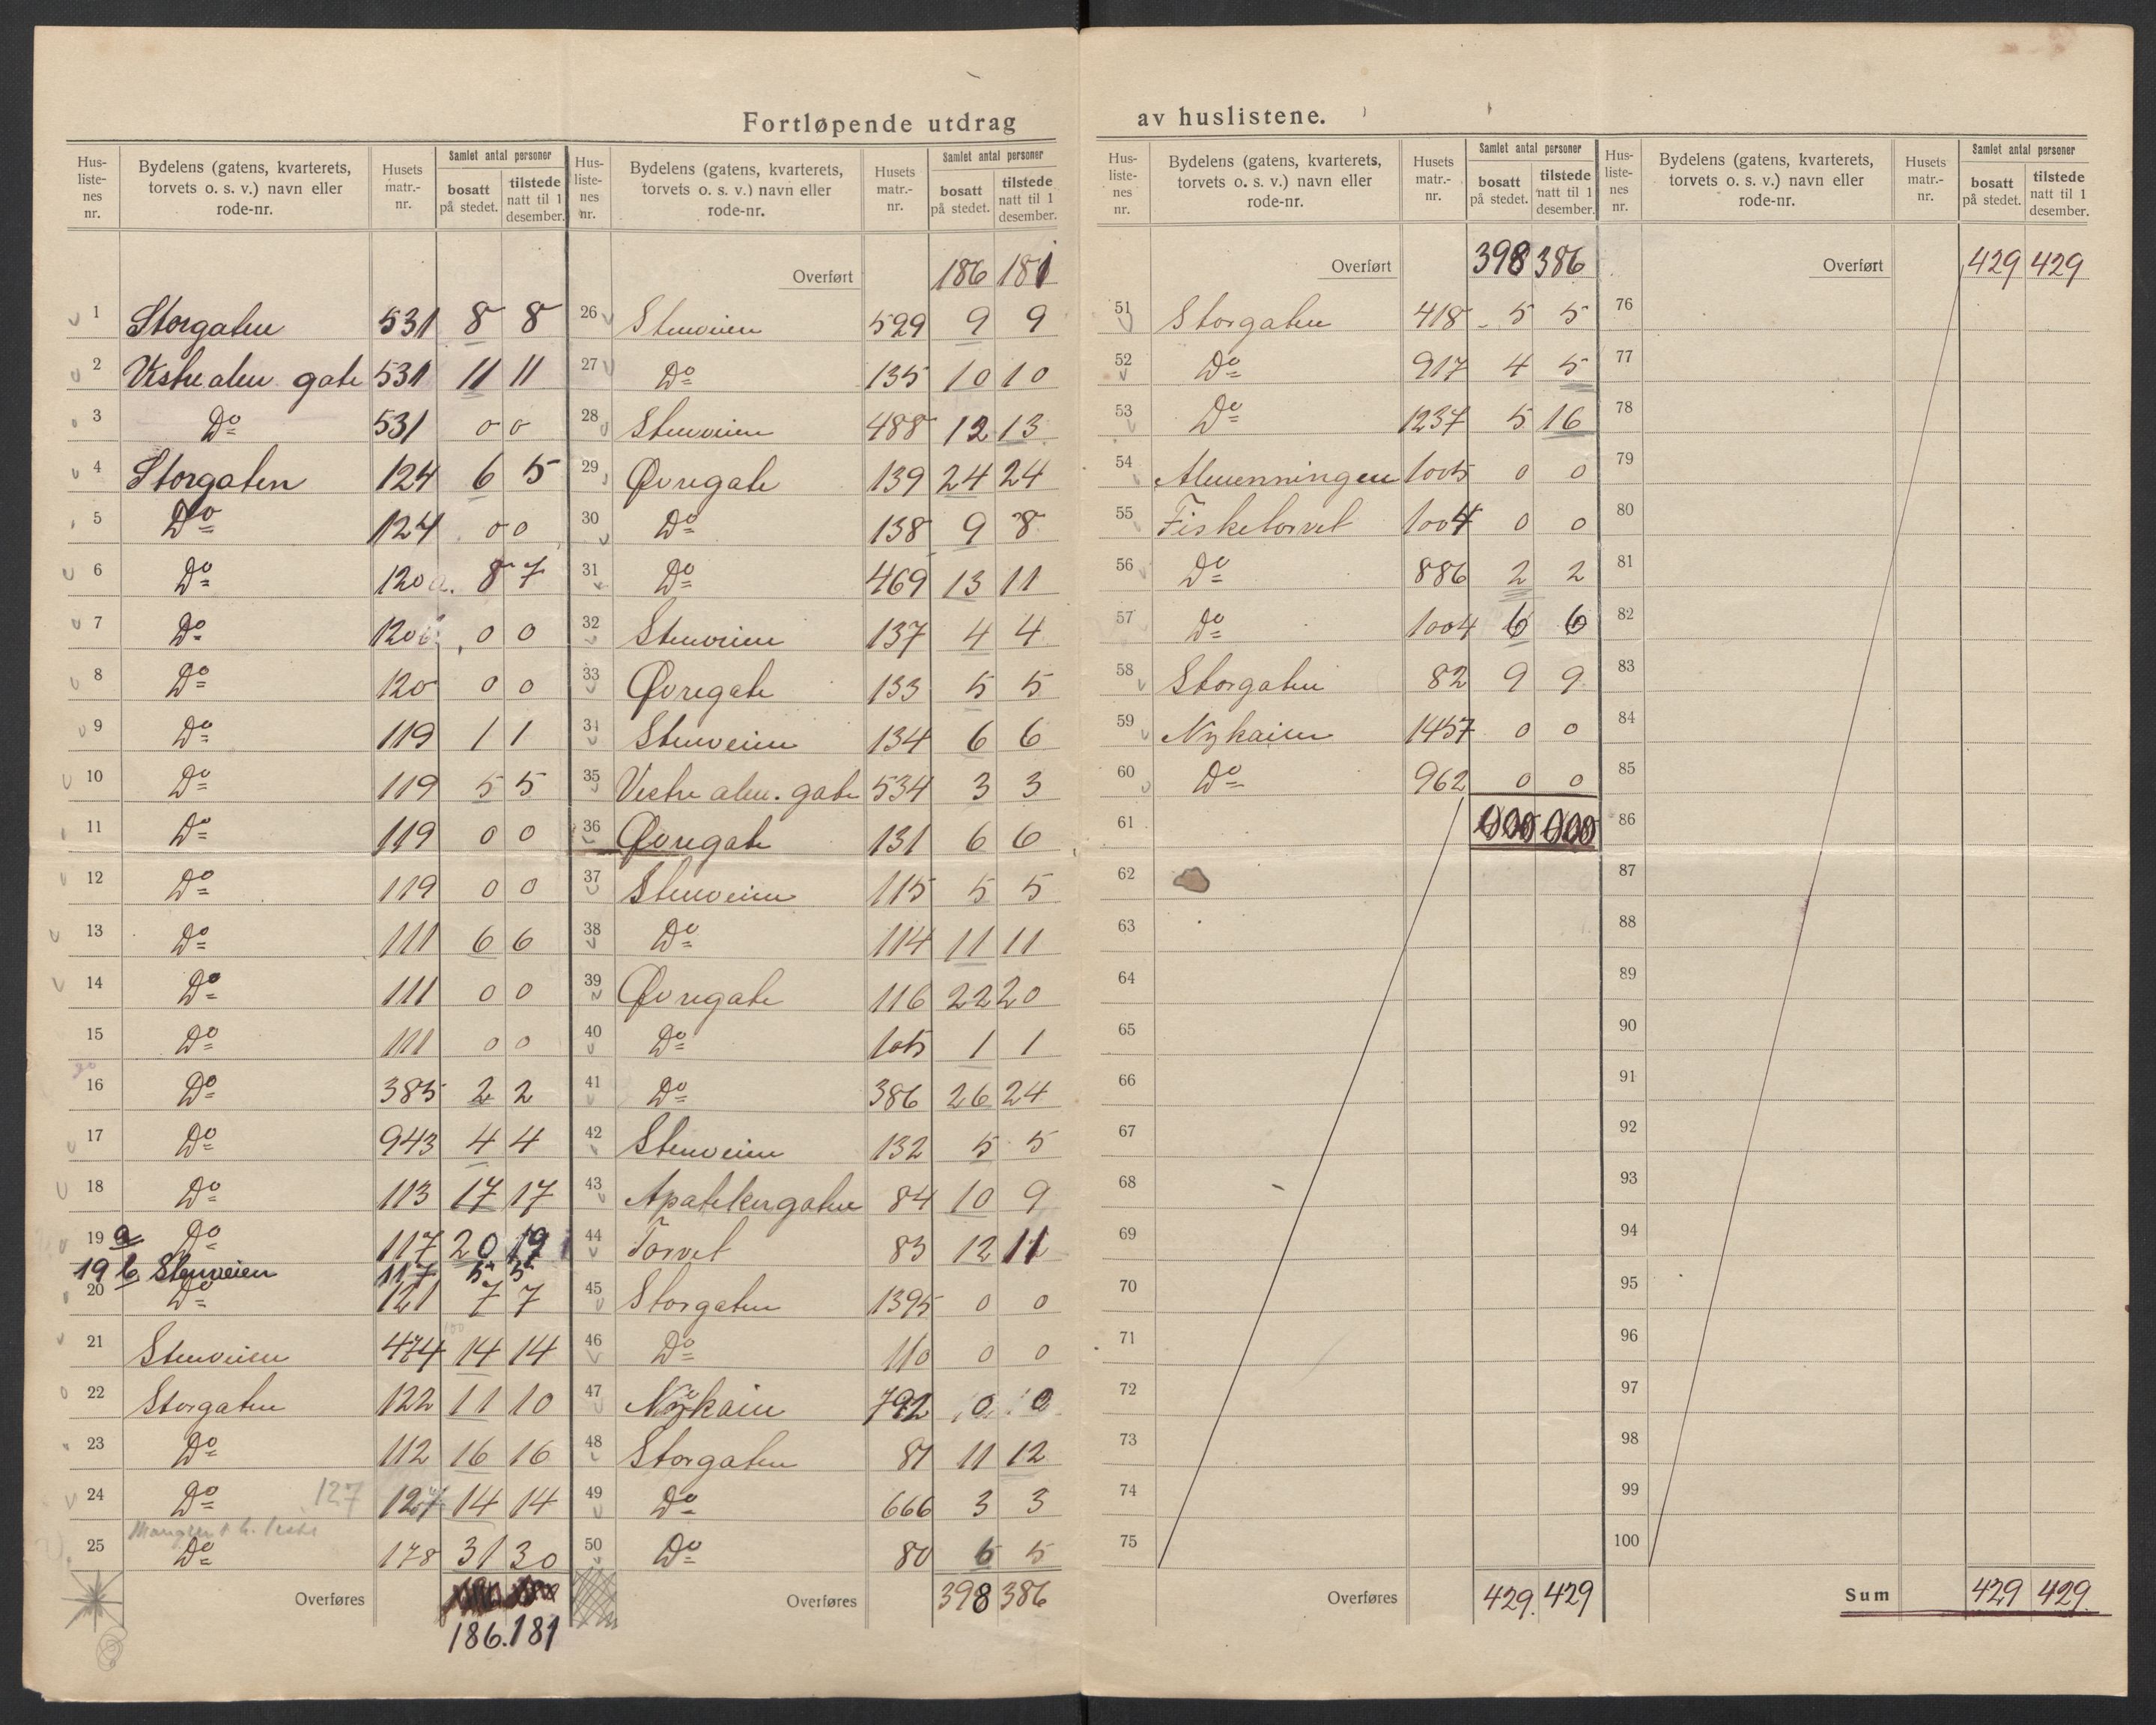 Fortløpende utdrag av huslistene.
Hus-liste-nes nr. | Bydelens (gatens, kvarterets, torvets o. s. v.) navn eller rode-nr. | Husets matr.-nr. | Samlet antal personer | bosatt på stedet. | tilstede natt til 1 desember.
1 Storgaten 531 8 8
2 Vestre alm gate 531 11 11
3 Do 531 0 0
4 Storgaten 124 6 5
5 Do 124 0 0
6 Do 120a. 8 7
7 Do 120b. 0 0
8 Do 120 0 0
9 Do 119 1 1
10 Do 119 5 5
11 Do 119 0 0
12 Do 119 0 0
13 Do 111 6 6
14 Do 111 0 0
15 Do 111 0 0
16 Do 385 2 2
17 Do 943 4 4
18 Do 113 17 17
19 a Do 117 20 19
19 b Stenveien 117 5 5
20 Do 121 7 7
21 Stenveien 474 14 14
22 Storgaten 122 11 10
23 Do 112 16 16
24 Do 127 127 14 14
25 Do 178 31 30
Overføres
186. 181
Hus-liste-nes nr. | Bydelens (gatens, kvarterets, torvets o. s. v.) navn eller rode-nr. | Husets matr.-nr. | Samlet antal personer | bosatt på stedet. | tilstede natt til 1 desember.
Overført 186 181
26 Stenveien 599 9 9
27 Do 135 10 10
28 Stenveien 488 12 13
29 Øvregate 139 24 24
30 Do 138 9 8
31 Do 469 13 11
32 Stenveien 137 4 4
33 Øvregate 133 5 5
34 Stenveien 134 6 6
35 Vestre alm. gate 534 3 3
36 Øvregate 131 6 6
37 Stenveien 115 5 5
38 Do 114 11 11
39 Øvregate 116 22 20
40 Do 105 1 1
41 Do 386 26 24
42 Stenveien 132 5 5
43 Apotekergaten 84 10 9
44 Torvet 83 12 11
45 Storgaten 1395 0 0
46 Do 110 0 0
47 Nykaien 792 0 0
48 Storgaten 81 11 12
49 Do 666 3 3
50 Do 80 6 5
Overføres 398 386
Hus-liste-nes nr. | Bydelens (gatens, kvarterets, torvets o. s. v.) navn eller rode-nr. | Husets matr.-nr. | Samlet antal personer | bosatt på stedet. | tilstede natt til 1 desember.
Overført 398 386
51 Storgaten 418 5 5
52 Do 917 4 5
53 Do 1237 5 16
54 Almenningen 1005 0 0
55 Fisketorvet 1004 0 0
56 Do 886 2 2
57 Do 1004 6 6
58 Storgaten 82 9 9
59 Nykaien 1457 0 0
60 Do 962 0 0
61
62
63
64
65
66
67
68
69
70
71
72
73
74
75
Overføres 429. 429
Hus-liste-nes nr. | Bydelens (gatens, kvarterets, torvets o. s. v.) navn eller rode-nr. | Husets matr.-nr. | Samlet antal personer | bosatt på stedet. | tilstede natt til 1 desember.
Overført 429 429
76
77
78
79
80
81
82
83
84
85
86
87
88
89
90
91
92
93
94
95
96
97
98
99
100
Sum 429 429.